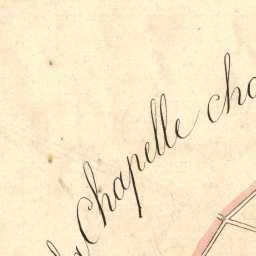 la Chapelle cha